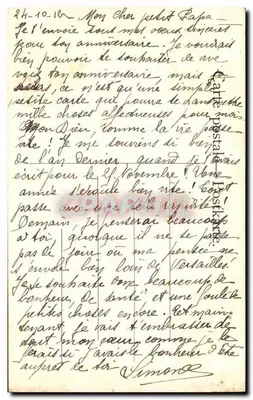 24-10-12 - Mon Cher petit Papa -
Je t'envoie tous mes vœux sincères
pour ton anniversaire. Je voudrais
bien pouvoir te souhaiter de vive
voix ton anniversaire, mais
ce n'est qu'une simple
petite carte que pourra te dire
mille choses affectueuses pour moi
Mon Dieu, comme la vie passe
vite! Je me souviens si bien
de l'an dernier, quand je t'avais
écrit pour le 2 Novembre! Une
année s'écoule bien vite! Tout
passe avec une
Demain, je penserai beaucoup
à toi, quoique il ne se passe
pas de jour où ma pensée ne
s'envole bien loin de Versailles.
Je te souhaite beaucoup de
bonheur, de santé, et une foule de
petites choses encore. Et main
tenant, je vais t'embrasser de
tout mon cœur comme je le
ferais si j'avais le bonheur d'être
auprès de toi
Simone
Carte postale. Postkarte.